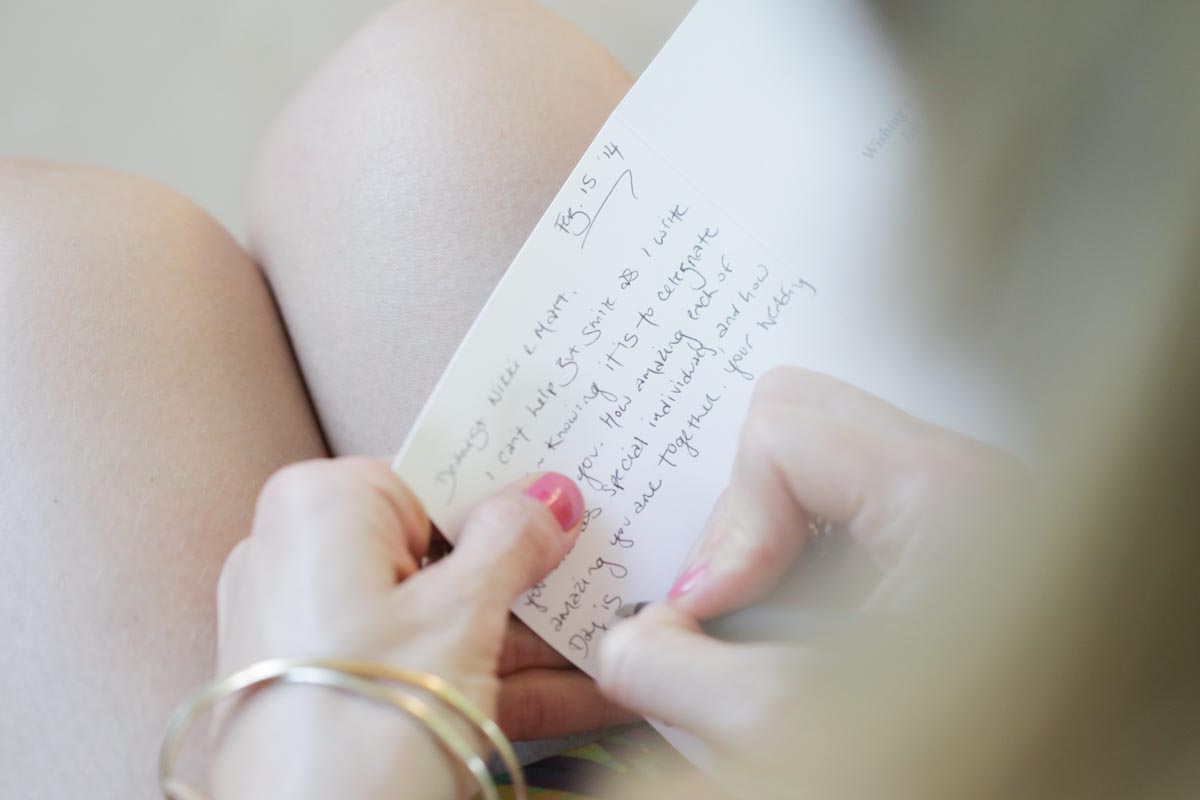 Feb. 15 '14
Dearest Nikki & Matt.
I can't help But smile as I write
~ knowing it is to celebrate
you. How amazing each of
you as special individuals, and how
amazing you are together. your wedding
Day is
Wishing